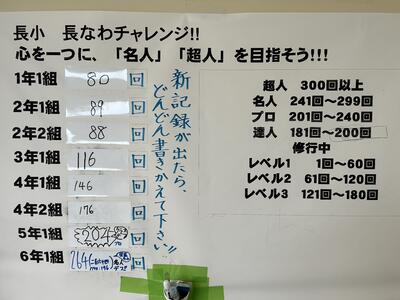 長小 長なわチャレンジ!!
心を一つに、「名人」「超人」を目指そう!!!
1年1組 80 回
2年1組 89 回
2年2組 88 回
3年1組 116 回
4年1組 146 回
4年2組 176 回
5年1組 204 プロ 回
6年1組 264 名人 回
新記録が出たら、
どんどん書きかえて下さい!!
超人 300回以上
名人 241回～299回
プロ 201回～240回
達人 181回～200回
修行中
レベル1 1回～60回
レベル2 61回～120回
レベル3 121回～180回